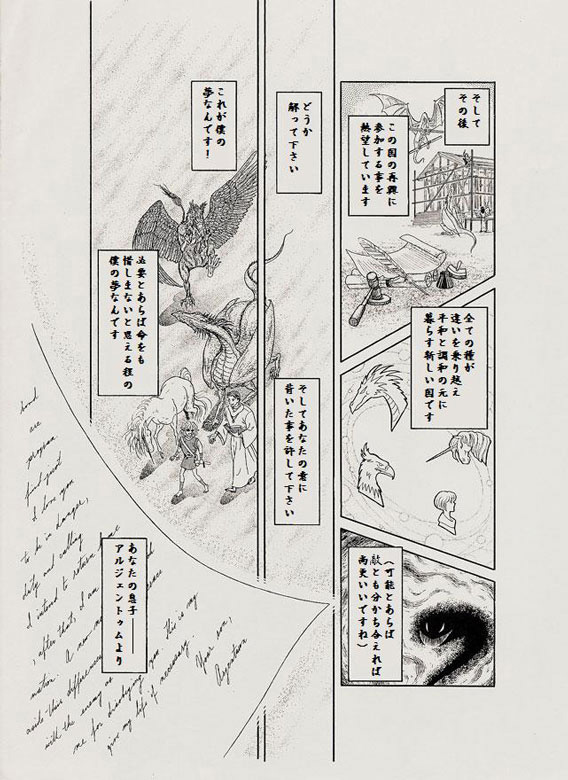 そして
その後
この国の再興に
参加する事を
熱望しています
全ての種が
違いを乗り越え
平和と調和の元に
暮らす新しい国です
(可能とあらば
敵とも分かち合えれば
尚更いいですね)
どうか
解って下さい
そしてあなたの意に
背いた事を許して下さい
これが僕の
夢なんです!
必要とあらば命をも
惜しまないと思える程の
僕の夢なんです
あなたの息子――
アルジェントゥムより
bond
are
program
find quiet
I love you
to be in danger,
duty and calling
I intend to return
, after that, I am
nation. A new
aside their differences
with the enemy as
me for disobeying you this is my
give my life if necessary.
Your son,
Argentum